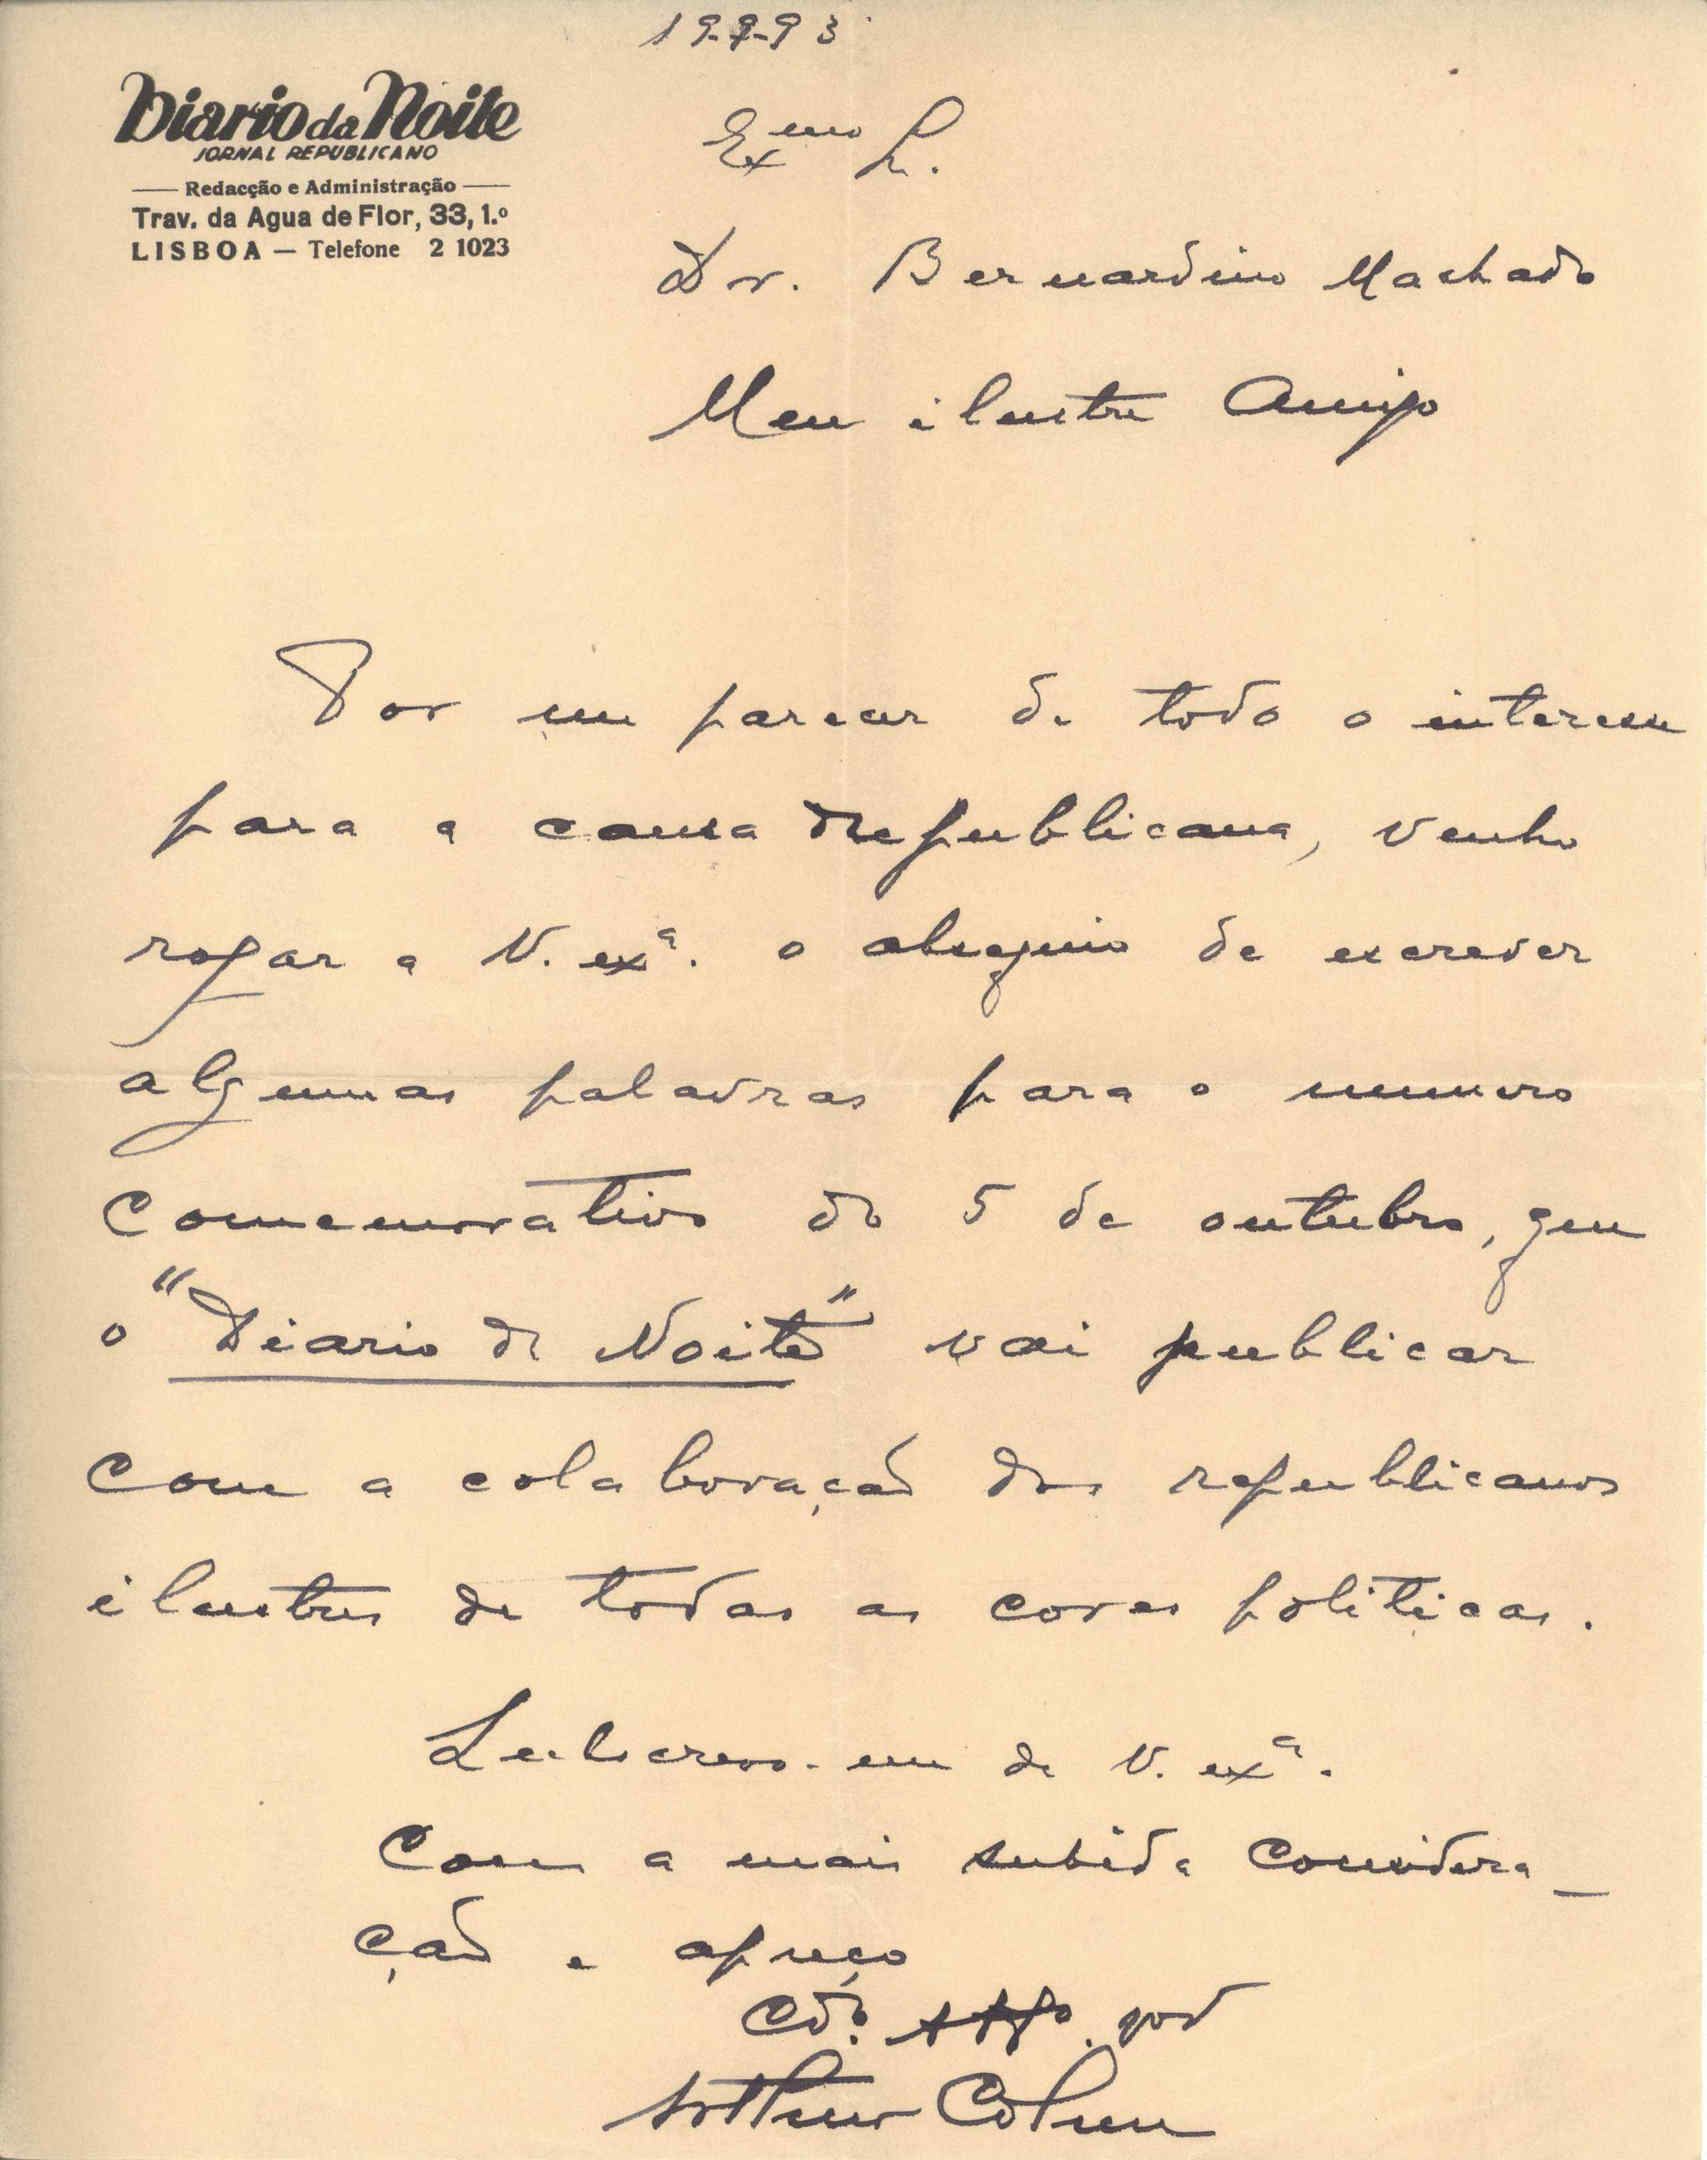 19-9-93
Diario da Noite
JORNAL REPUBLICANO
Redacção e Administração
Trav. da Agua de Flor, 33, 1.º
LISBOA — Telefone 2 1023
Exmo Sr.
Dr. Bernardino Machado
Meu ilustre Amigo
Por me parecer de todo o interesse
para a causa Republicana, venho
rogar a V. exª. o obsequio de escrever
algumas palavras para o numero
comemorativo do 5 de outubro, que
o "Diario da Noite" vai publicar
com a colaboração dos republicanos
ilustres de todas as cores politicas.
Subscrevo-me de V. exª.
Com a mais subida considera-
ção e apreço
Cdo. Atto.
Arthur Cohen